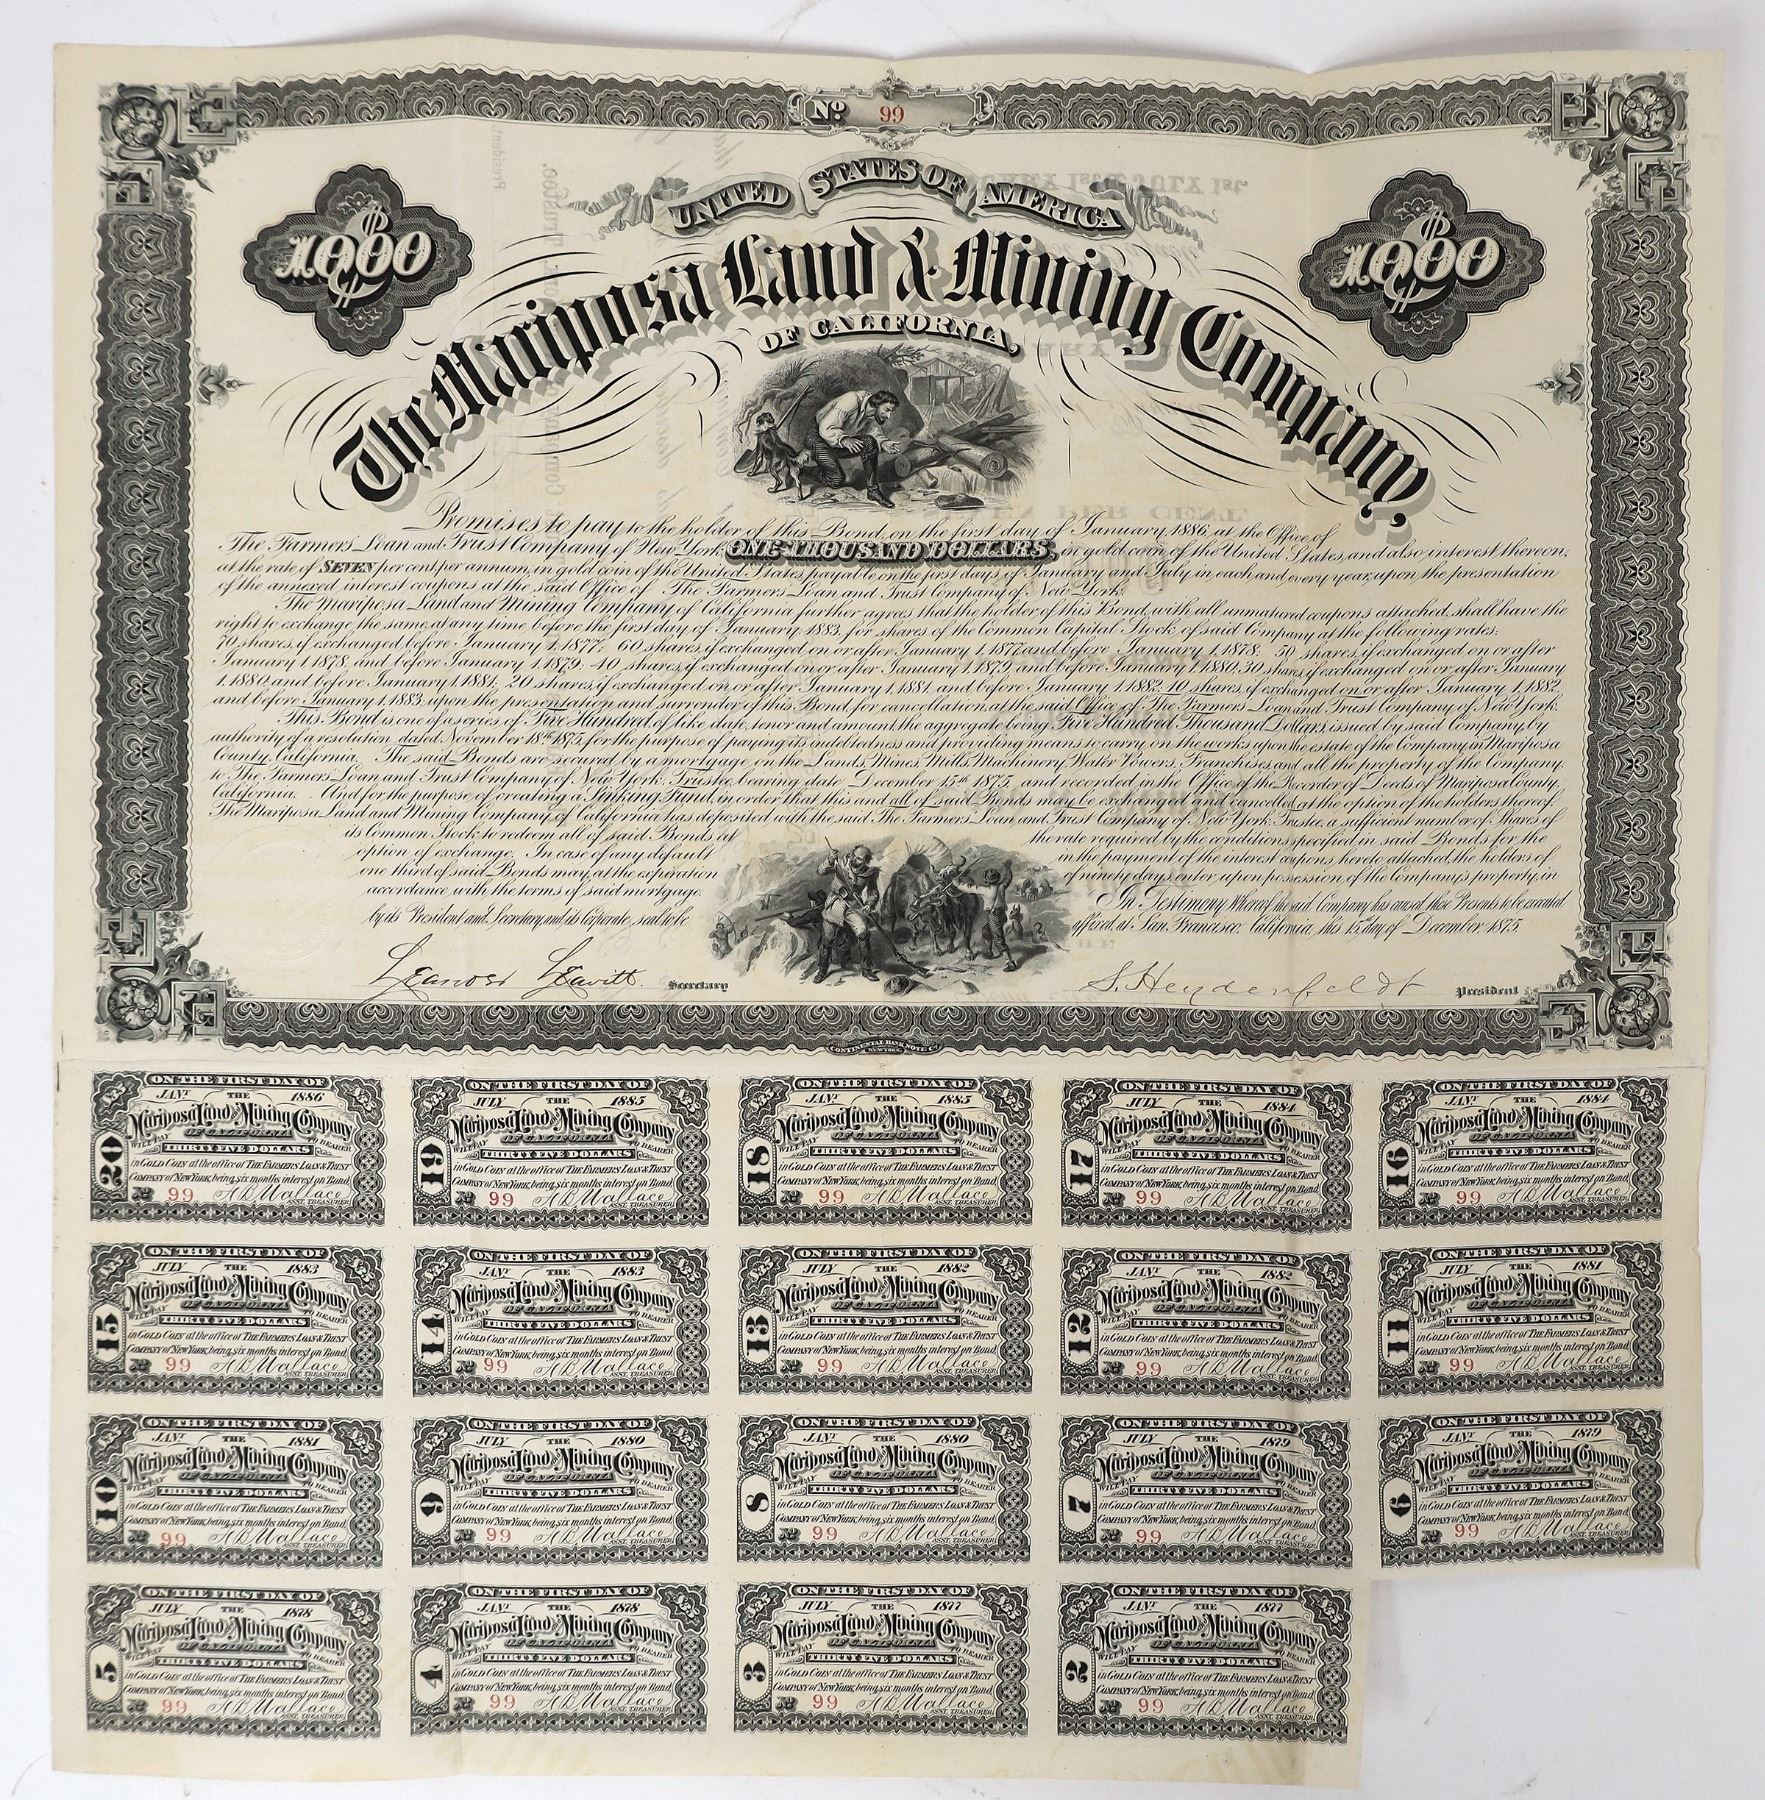 No 99
UNITED STATES OF AMERICA
$1000
$1000
The Mariposa Land & Mining Company,
OF CALIFORNIA,
Promises to pay to the holder of this Bond, on the first day of January 1886, at the Office of
The Farmers' Loan and Trust Company of New York, ONE THOUSAND DOLLARS, in gold coin of the United States, and also interest thereon,
at the rate of SEVEN per cent. per annum, in gold coin of the United States payable on the first days of January and July in each and every year, upon the presentation
of the annexed interest coupons at the said Office of The Farmers Loan and Trust Company of New York.
The Mariposa Land and Mining Company of California further agrees that the holder of this Bond, with all unmatured coupons attached, shall have the
right to exchange the same, at any time before the first day of January 1883, for shares of the Common Capital Stock of said Company at the following rates:
70 shares, if exchanged before January 1, 1877; 60 shares, if exchanged on or after January 1, 1877 and before January 1, 1878; 50 shares, if exchanged on or after
January 1, 1878, and before January 1, 1879; 40 shares, if exchanged on or after January 1, 1879, and before January 1, 1880; 30 shares, if exchanged on or after January
1, 1880, and before January 1, 1881; 20 shares, if exchanged on or after January 1, 1881, and before January 1, 1882; 10 shares, if exchanged on or after January 1, 1882,
and before January 1, 1883, upon the presentation and surrender of this Bond, for cancellation, at the said Office of The Farmers Loan and Trust Company of New York.
This Bond is one of a series of Five Hundred, of like date, tenor and amount, the aggregate being Five Hundred Thousand Dollars, issued by said Company, by
authority of a resolution dated November 18th 1875, for the purpose of paying its indebtedness and providing means to carry on the works upon the estate of the Company in Mariposa
County, California. The said Bonds are secured by a mortgage on the Lands, Mines, Mills, Machinery, Water Powers, Franchises, and all the property of the Company,
to The Farmers Loan and Trust Company of New York, Trustee, bearing date December 15th 1875, and recorded in the Office of the Recorder of Deeds of Mariposa County,
California. And for the purpose of creating a Sinking Fund, in order that this and all of said Bonds may be exchanged and cancelled at the option of the holders thereof,
The Mariposa Land and Mining Company of California has deposited with the said The Farmers' Loan and Trust Company of New York, Trustee, a sufficient number of Shares of
its Common Stock to redeem all of said Bonds at the rate required by the conditions specified in said Bonds for the
option of exchange. In case of any default in the payment of the interest coupons, hereto attached, the holders of
one third of said Bonds may, at the expiration of ninety days, enter upon possession of the Company's property, in
accordance with the terms of said mortgage. In Testimony Whereof the said Company has caused these Presents to be executed
by its President and Secretary, and its Corporate seal to be affixed, at San Francisco, California, this 15th day of December 1875.
Leander Leavitt. Secretary
S. Heydenfeldt President
CONTINENTAL BANK NOTE Co
NEW YORK
20 $35 ON THE FIRST DAY OF $35
JANY THE 1886
Mariposa Land and Mining Company
OF CALIFORNIA
WILL PAY TO BEARER
THIRTY FIVE DOLLARS
in GOLD COIN at the office of THE FARMERS LOAN & TRUST
COMPANY of NEW YORK, being six months interest on Bond,
No 99 A B Wallace
ASST. TREASURER
19 $35 ON THE FIRST DAY OF $35
JULY THE 1885
Mariposa Land and Mining Company
OF CALIFORNIA
WILL PAY TO BEARER
THIRTY FIVE DOLLARS
in GOLD COIN at the office of THE FARMERS LOAN & TRUST
COMPANY of NEW YORK, being six months interest on Bond,
No 99 A B Wallace
ASST. TREASURER
18 $35 ON THE FIRST DAY OF $35
JANY THE 1885
Mariposa Land and Mining Company
OF CALIFORNIA
WILL PAY TO BEARER
THIRTY FIVE DOLLARS
in GOLD COIN at the office of THE FARMERS LOAN & TRUST
COMPANY of NEW YORK, being six months interest on Bond,
No 99 A B Wallace
ASST. TREASURER
17 $35 ON THE FIRST DAY OF $35
JULY THE 1884
Mariposa Land and Mining Company
OF CALIFORNIA
WILL PAY TO BEARER
THIRTY FIVE DOLLARS
in GOLD COIN at the office of THE FARMERS LOAN & TRUST
COMPANY of NEW YORK, being six months interest on Bond,
No 99 A B Wallace
ASST. TREASURER
16 $35 ON THE FIRST DAY OF $35
JANY THE 1884
Mariposa Land and Mining Company
OF CALIFORNIA
WILL PAY TO BEARER
THIRTY FIVE DOLLARS
in GOLD COIN at the office of THE FARMERS LOAN & TRUST
COMPANY of NEW YORK, being six months interest on Bond,
No 99 A B Wallace
ASST. TREASURER
15 $35 ON THE FIRST DAY OF $35
JULY THE 1883
Mariposa Land and Mining Company
OF CALIFORNIA
WILL PAY TO BEARER
THIRTY FIVE DOLLARS
in GOLD COIN at the office of THE FARMERS LOAN & TRUST
COMPANY of NEW YORK, being six months interest on Bond,
No 99 A B Wallace
ASST. TREASURER
14 $35 ON THE FIRST DAY OF $35
JANY THE 1883
Mariposa Land and Mining Company
OF CALIFORNIA
WILL PAY TO BEARER
THIRTY FIVE DOLLARS
in GOLD COIN at the office of THE FARMERS LOAN & TRUST
COMPANY of NEW YORK, being six months interest on Bond,
No 99 A B Wallace
ASST. TREASURER
13 $35 ON THE FIRST DAY OF $35
JULY THE 1882
Mariposa Land and Mining Company
OF CALIFORNIA
WILL PAY TO BEARER
THIRTY FIVE DOLLARS
in GOLD COIN at the office of THE FARMERS LOAN & TRUST
COMPANY of NEW YORK, being six months interest on Bond,
No 99 A B Wallace
ASST. TREASURER
12 $35 ON THE FIRST DAY OF $35
JANY THE 1882
Mariposa Land and Mining Company
OF CALIFORNIA
WILL PAY TO BEARER
THIRTY FIVE DOLLARS
in GOLD COIN at the office of THE FARMERS LOAN & TRUST
COMPANY of NEW YORK, being six months interest on Bond,
No 99 A B Wallace
ASST. TREASURER
11 $35 ON THE FIRST DAY OF $35
JULY THE 1881
Mariposa Land and Mining Company
OF CALIFORNIA
WILL PAY TO BEARER
THIRTY FIVE DOLLARS
in GOLD COIN at the office of THE FARMERS LOAN & TRUST
COMPANY of NEW YORK, being six months interest on Bond,
No 99 A B Wallace
ASST. TREASURER
10 $35 ON THE FIRST DAY OF $35
JANY THE 1881
Mariposa Land and Mining Company
OF CALIFORNIA
WILL PAY TO BEARER
THIRTY FIVE DOLLARS
in GOLD COIN at the office of THE FARMERS LOAN & TRUST
COMPANY of NEW YORK, being six months interest on Bond,
No 99 A B Wallace
ASST. TREASURER
9 $35 ON THE FIRST DAY OF $35
JULY THE 1880
Mariposa Land and Mining Company
OF CALIFORNIA
WILL PAY TO BEARER
THIRTY FIVE DOLLARS
in GOLD COIN at the office of THE FARMERS LOAN & TRUST
COMPANY of NEW YORK, being six months interest on Bond,
No 99 A B Wallace
ASST. TREASURER
8 $35 ON THE FIRST DAY OF $35
JANY THE 1880
Mariposa Land and Mining Company
OF CALIFORNIA
WILL PAY TO BEARER
THIRTY FIVE DOLLARS
in GOLD COIN at the office of THE FARMERS LOAN & TRUST
COMPANY of NEW YORK, being six months interest on Bond,
No 99 A B Wallace
ASST. TREASURER
7 $35 ON THE FIRST DAY OF $35
JULY THE 1879
Mariposa Land and Mining Company
OF CALIFORNIA
WILL PAY TO BEARER
THIRTY FIVE DOLLARS
in GOLD COIN at the office of THE FARMERS LOAN & TRUST
COMPANY of NEW YORK, being six months interest on Bond,
No 99 A B Wallace
ASST. TREASURER
6 $35 ON THE FIRST DAY OF $35
JANY THE 1879
Mariposa Land and Mining Company
OF CALIFORNIA
WILL PAY TO BEARER
THIRTY FIVE DOLLARS
in GOLD COIN at the office of THE FARMERS LOAN & TRUST
COMPANY of NEW YORK, being six months interest on Bond,
No 99 A B Wallace
ASST. TREASURER
5 $35 ON THE FIRST DAY OF $35
JULY THE 1878
Mariposa Land and Mining Company
OF CALIFORNIA
WILL PAY TO BEARER
THIRTY FIVE DOLLARS
in GOLD COIN at the office of THE FARMERS LOAN & TRUST
COMPANY of NEW YORK, being six months interest on Bond,
No 99 A B Wallace
ASST. TREASURER
4 $35 ON THE FIRST DAY OF $35
JANY THE 1878
Mariposa Land and Mining Company
OF CALIFORNIA
WILL PAY TO BEARER
THIRTY FIVE DOLLARS
in GOLD COIN at the office of THE FARMERS LOAN & TRUST
COMPANY of NEW YORK, being six months interest on Bond,
No 99 A B Wallace
ASST. TREASURER
3 $35 ON THE FIRST DAY OF $35
JULY THE 1877
Mariposa Land and Mining Company
OF CALIFORNIA
WILL PAY TO BEARER
THIRTY FIVE DOLLARS
in GOLD COIN at the office of THE FARMERS LOAN & TRUST
COMPANY of NEW YORK, being six months interest on Bond,
No 99 A B Wallace
ASST. TREASURER
2 $35 ON THE FIRST DAY OF $35
JANY THE 1877
Mariposa Land and Mining Company
OF CALIFORNIA
WILL PAY TO BEARER
THIRTY FIVE DOLLARS
in GOLD COIN at the office of THE FARMERS LOAN & TRUST
COMPANY of NEW YORK, being six months interest on Bond,
No 99 A B Wallace
ASST. TREASURER